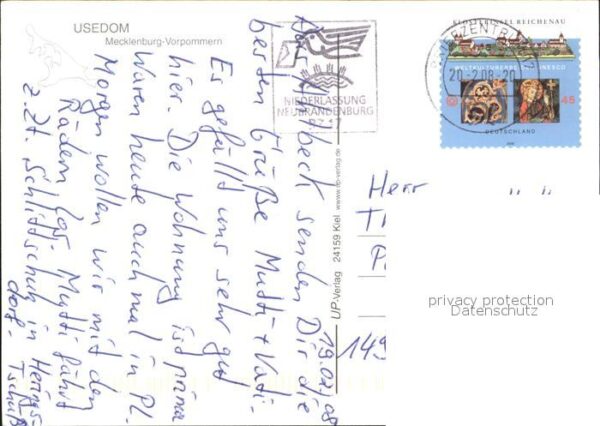 USEDOM
Mecklenburg-Vorpommern
19.02.08
Aus Ahlbeck senden Dir die
besten Grüße Mutti + Vati.
Es gefällt uns sehr gut
hier. Die Wohnung ist prima
Waren heute auch mal in Pl.
Morgen wollen wir mit den
Rädern los. Mutti fährt
z. Zt. Schlittschuh in Herings-
dorf. Tschüß
NIEDERLASSUNG
NEUBRANDENBURG
BRIEFZENTRUM
20-2.08-20
KLOSTERINSEL REICHENAU
WELTKULTURERBE DER UNESCO
45
DEUTSCHLAND
UP-Verlag 24159 Kiel www.up-verlag.de
Herr
T
P
149
privacy protection
Datenschutz